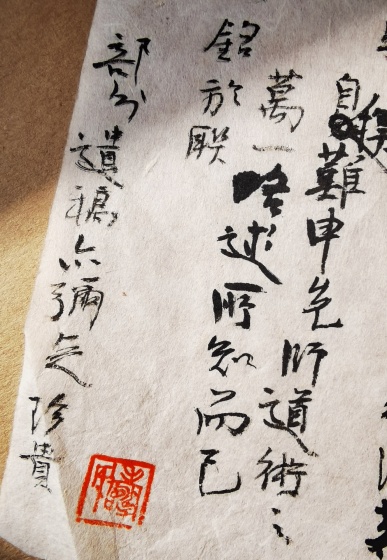 自難申先師道術之
萬一略述所知而已
銘於联
部分遺稿亦彌足珍貴